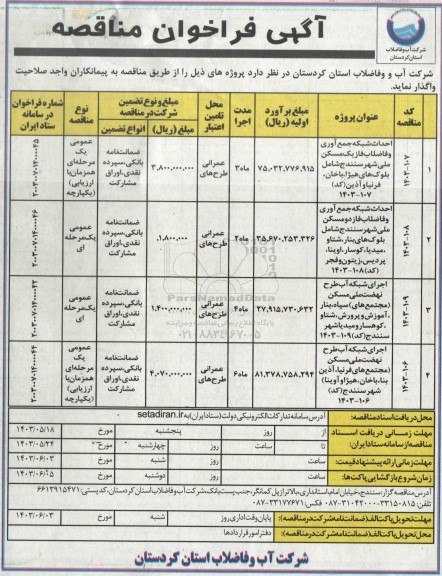 آگهی فراخوان مناقصه
شرکت آب و فاضلاب
استان کردستان
شرکت آب و فاضلاب استان کردستان در نظر دارد پروژه های ذیل را از طریق مناقصه به پیمانکاران واجد صلاحیت
واگذار نماید.
کد مناقصه
عنوان پروژه
مبلغ برآورد اولیه (ریال)
مدت اجرا
محل تامین اعتبار
مبلغ و نوع تضمین شرکت در مناقصه
مبلغ (ریال)
انواع تضمین
نوع مناقصه
شماره فراخوان در سامانه ستاد ایران
۱
۱۴۰۳-۱۰۷
احداث شبکه جمع آوری
وفاضلاب فاز یک مسکن
ملی شهر سنندج شامل
بلوک های هیژا، باخان،
فرنیا و آذین (کد)
۱۴۰۳-۱۰۷
۷۵،۰۳۲،۷۷۶،۹۱۵
۳ماه
عمرانی طرح‌های
۳،۸۰۰،۰۰۰،۰۰۰
ضمانتنامه
بانکی، سپرده
نقدی، اوراق
مشارکت
عمومی
یک
مرحله‌ای
همزمان با
ارزیابی)
(یکپارچه
۲
۱۴۰۳-۱۰۸
احداث شبکه جمع آوری
وفاضلاب فاز دو مسکن
ملی شهر سنندج شامل
بلوک های بنار، شناو
،میدیا، کوسار، اوینا،
پردیس، زیتون و فجر
(کد)۱۴۰۳-۱۰۸
۳۵،۶۷۰،۲۵۳،۳۲۶
۲ماه
عمرانی
طرح‌های
،۱،۸۰۰،۰۰۰
ضمانتنامه
بانکی، سپرده
نقدی، اوراق
مشارکت
عمومی
یک مرحله
ای
۳
۱۴۰۳-۱۰۹
اجرای شبکه آب طرح
نهضت ملی مسکن
(مجتمع های) سپاه، بنار
،آموزش و پرورش، شناو
،کوهسار و میدیا شهر
سنندج (کد)۱۴۰۳-۱۰۹
۳۷،۹۱۵،۷۳۰،۶۳۲
۴ماه
عمرانی
طرح‌های
۱،۴۰۰،۰۰۰،۰۰۰
ضمانتنامه
بانکی، سپرده
نقدی، اوراق
مشارکت
عمومی
یک مرحله
ای
۴
۱۴۰۳-۱۰۶
اجرای شبکه آب طرح
نهضت ملی مسکن
(مجتمع های فرنیا، آذین
بنا، باخان، هیژا و آوینا)
شهر سنندج (کد)
۱۴۰۳-۱۰۶
۸۱،۳۷۸،۷۵۸،۲۹۴
۶ماه
عمرانی
طرح‌های
۴،۰۷۰،۰۰۰،۰۰۰
ضمانتنامه
بانکی، سپرده
نقدی، اوراق
مشارکت
عمومی
یک
مرحله‌ای
همزمان با
ارزیابی)
(یکپارچه
محل دریافت اسناد مناقصه: آدرس سامانه تدارکات الکترونیکی دولت (ستاد ایران) به setadiran.ir
مهلت زمانی دریافت اسناد مناقصه از سامانه ستاد ایران:
از روز پنجشنبه مورخ ۱۴۰۳/۰۵/۱۸
تا ساعت روز چهارشنبه مورخ ۱۴۰۳/۰۵/۲۴
مهلت زمانی ارائه پیشنهاد قیمت: ساعت روز شنبه مورخ ۱۴۰۳/۰۶/۰۳
زمان شروع بازگشایی پاکت ها: ساعت روز دوشنبه مورخ ۱۴۰۳/۰۶/۰۵
آدرس مناقصه گزار: سنندج، خیابان امام، استانداری، بالاتر از پل کمانگر، جنب پست بانک، شرکت آب و فاضلاب استان کردستان، کدپستی: ۶۶۱۳۹۱۵۴۷۱
فکس: ۰۸۷-۳۳۱۷۷۶۷۱
مهلت تحویل پاکت الف (ضمانت نامه شرکت در مناقصه): پایان وقت اداری روز شنبه مورخ ۱۴۰۳/۰۶/۰۳
محل تحویل پاکت الف (ضمانت نامه شرکت در مناقصه): دفتر امور قراردادها
شرکت آب و فاضلاب استان کردستان